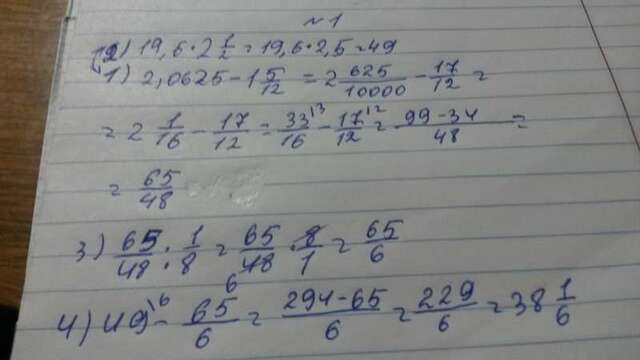 №1
2) 19,6 · 2 1/2 = 19,6 · 2,5 = 49
1) 2,0625 - 1 5/12 = 2 625/10000 - 17/12 =
= 2 1/16 - 17/12 = 33/16 \3 - 17/12 \2 = 99-34/48 =
= 65/48
3) 65/48 : 1/8 = 65/48 6 · 8/1 = 65/6
4) 49 \6 - 65/6 = 294-65/6 = 229/6 = 38 1/6